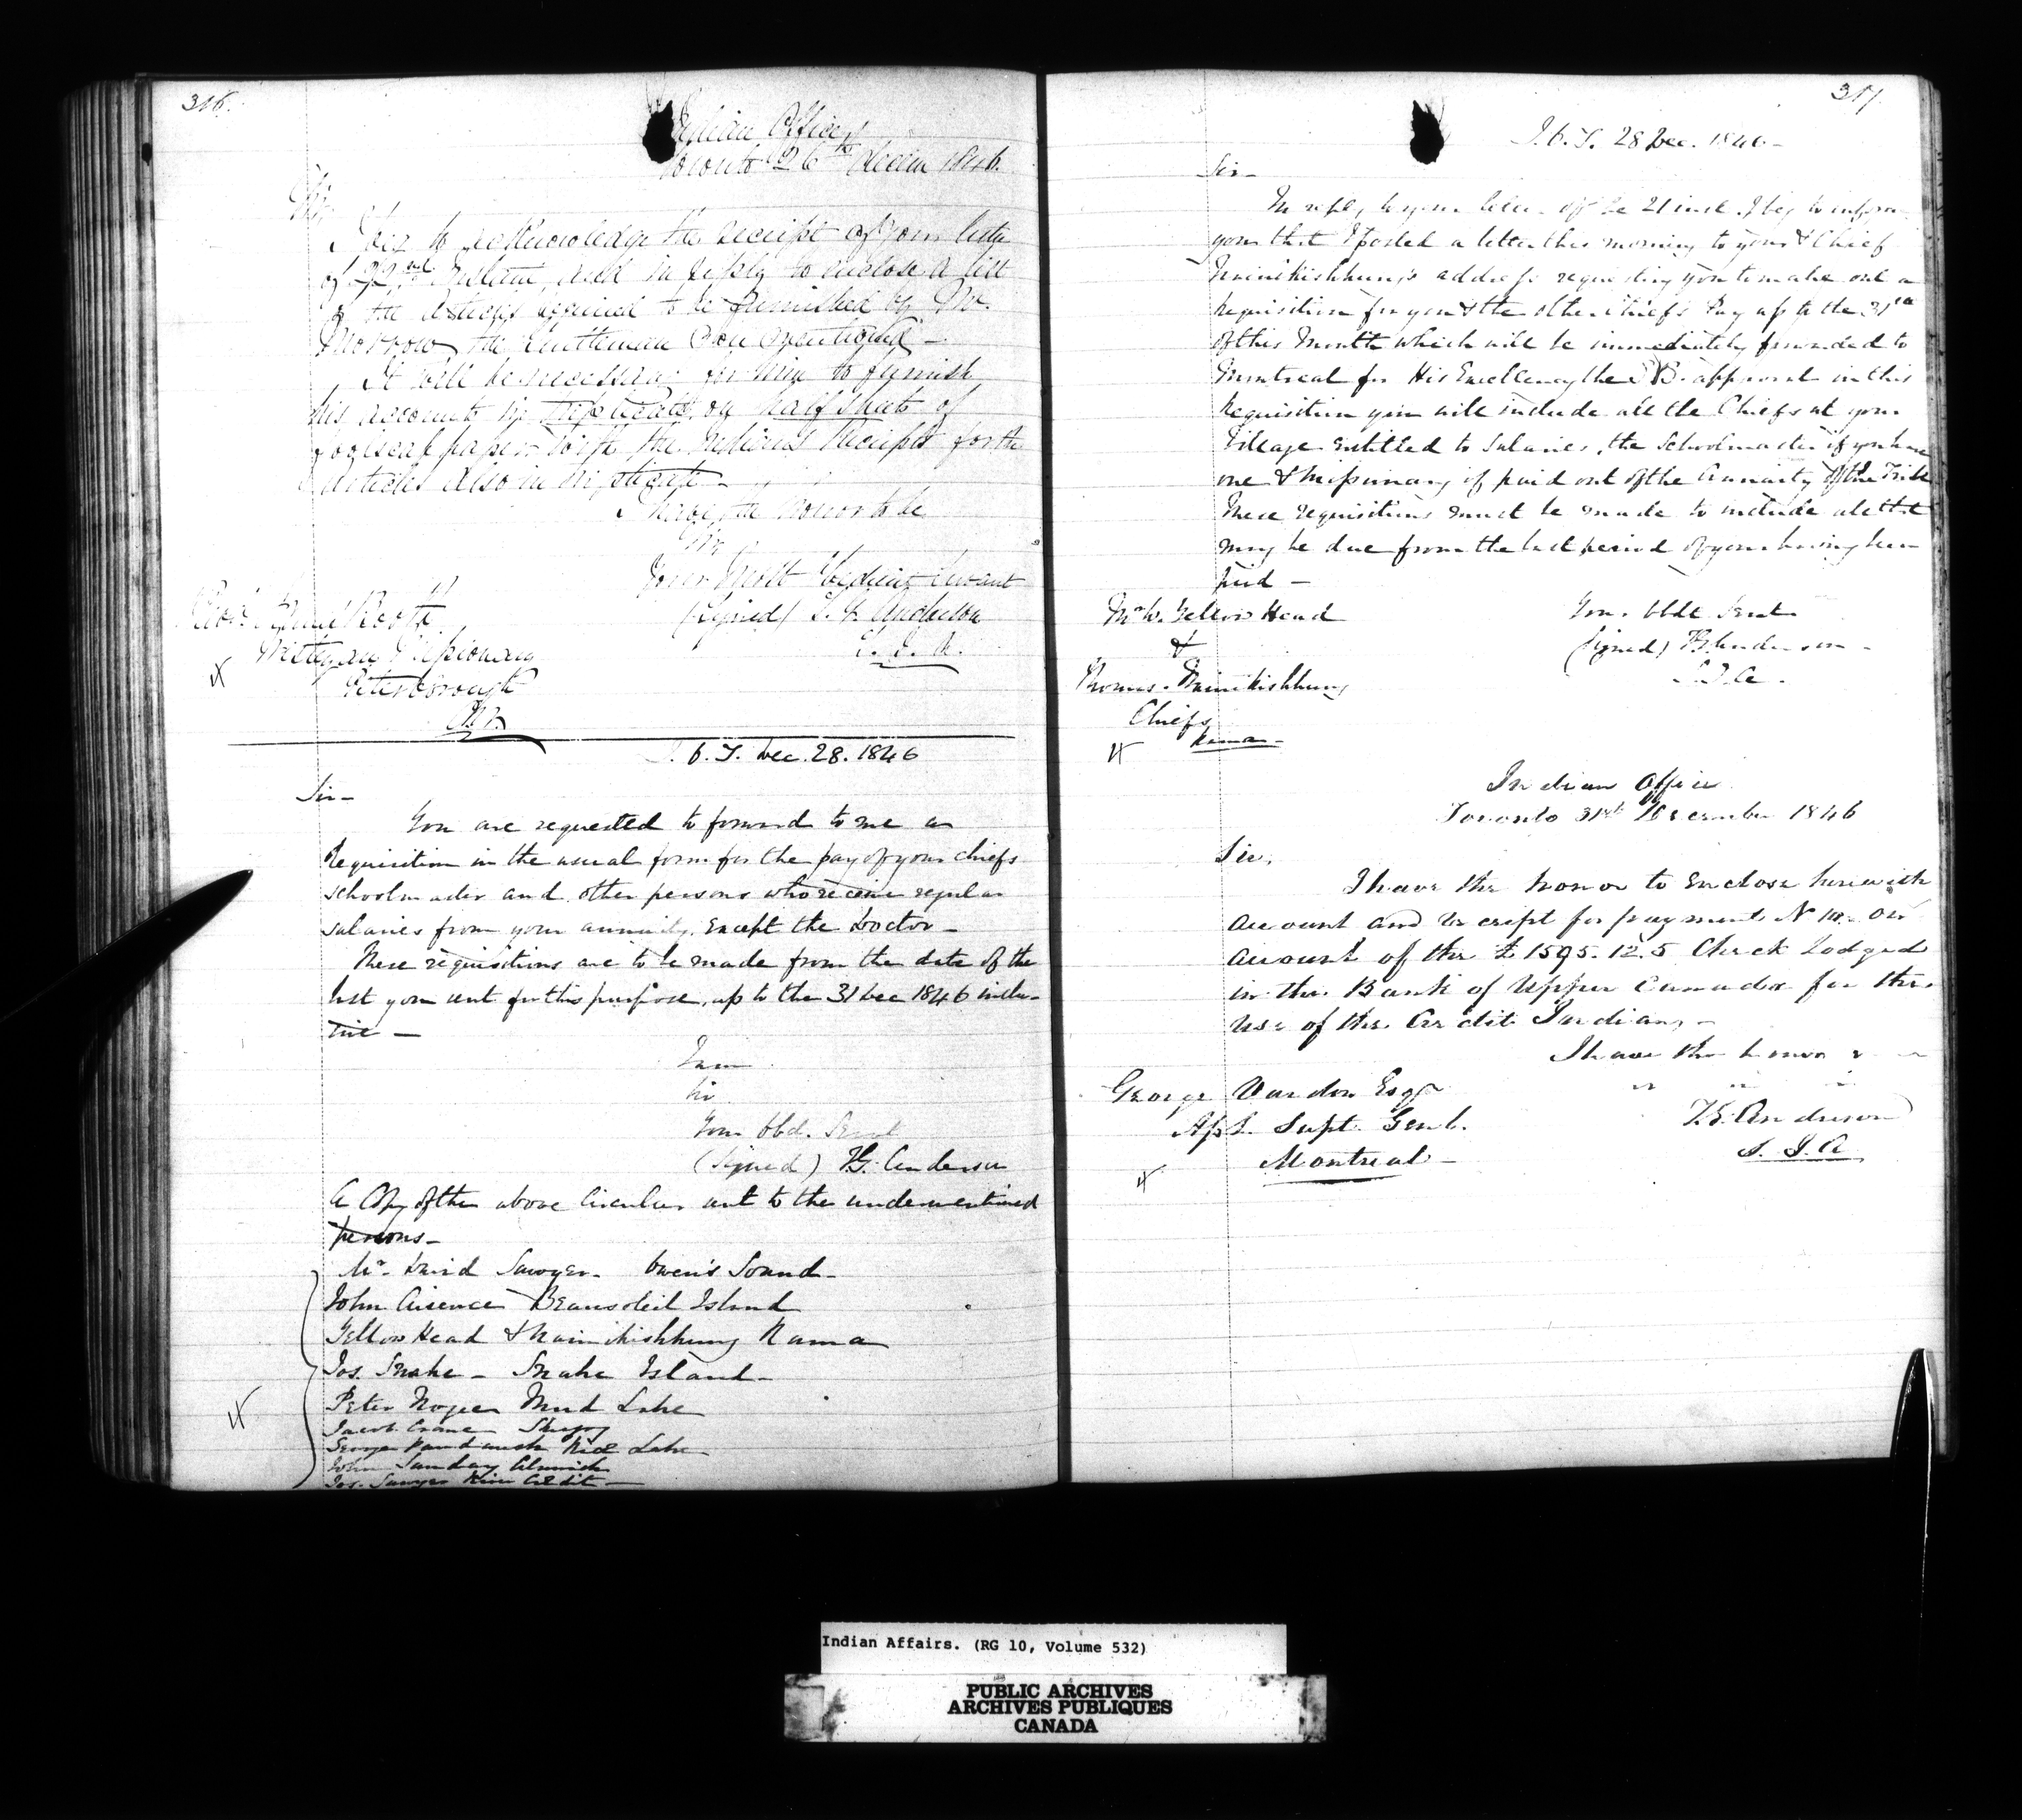 316.
Indian Office
Toronto 26th Decem 1846.
Sir
I beg to acknowledge the receipt of your letter
of 22nd Instant, and in reply to enclose a list
of the articles required to be furnished by Mr.
Morrow, the Gentleman you mentioned –
It will be necessary for him to furnish
his accounts in triplicate, on half sheets of
foolscap paper with the Indians Receipts for the
articles also in triplicate –
I have the honor to be
Sir
Your Most Obedient Servant
(Signed) T. G. Anderson
S. I. A.
Revd. Booth
Wesleyan Missionary
Peterborough
I. O. T. Dec. 28. 1846
Sir –
You are requested to forward to me a
Requisition in the usual form for the pay of your chiefs
schoolmaster and other persons who receive regular
salaries from your annuity, except the Doctor –
These requisitions are to be made from the date of the
last you sent for this purpose, up to the 31 Dec 1846 inclu-
sive –
I am
Sir
Your Obd. Servt
(Signed) T G. Anderson
A Copy of the above Circular sent to the undermentioned
persons –
Mr. David Sawyer. Owen's Sound –
John Aisence Beausoleil Island
Yellow Head & Nainikishkung Rama
Jos. Snake – Snake Island –
Peter Nogie Mud Lake
Jacob Crane Skugog
George Paudaush Rice Lake –
John Sunday Alnwick
Jos. Sawyer River Credit –
317.
I. O. T. 28 Dec. 1846 –
Sir –
In reply to your letter of the 21 inst. I beg to inform
you that I posted a letter this morning to your & Chief
Nainikishkung's address requesting you to make out a
requisition for you & the other Chiefs Pay up to the 31st
of this Month which will be immediately forwarded to
Montreal for His Excellency the approval in this
Requisition you will include all the Chiefs at your
Village entitled to Salaries, the Schoolmaster if you have
one & Missionary if paid out of the Annuity of the Tribe
These requisitions must be made to include all that
may be due from the last period of your having been
paid –
Your Obdt Servt
(Signed) T G Anderson –
S. I. A.
Mr W. Yellow Head
&
Thomas. Nainikishkung
Chiefs
Rama –
Indian Office
Toronto 31st December 1846
Sir,
I have the honor to Enclose herewith
account and receipt for payment No 10. on
account of the £1595. 12. 5 Check lodged
in the Bank of Upper Canada for the
use of the Credit Indians –
I have the honor
" " "
T. G. Anderson
S. I. A
George Vardon Esqr
Asst. Supt. Genl.
Montreal –
Indian Affairs. (RG 10, Volume 532)
PUBLIC ARCHIVES
ARCHIVES PUBLIQUES
CANADA